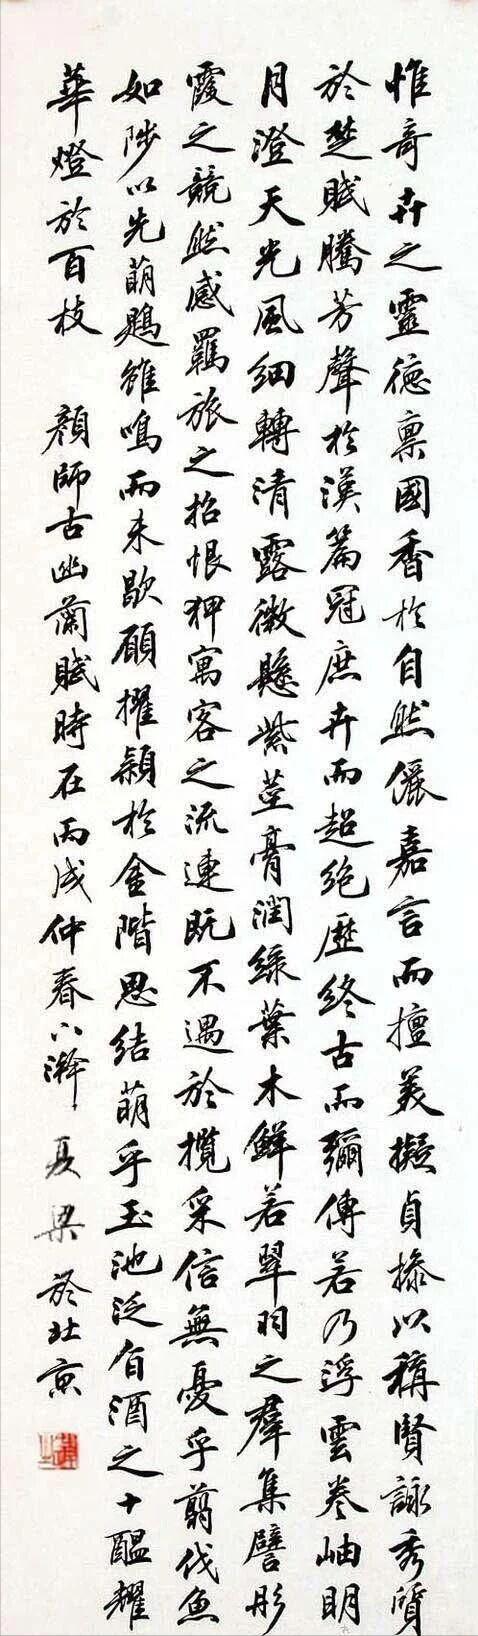 惟奇卉之靈德稟國香於自然儷嘉言而擅美擬貞操以稱賢詠秀質
於楚賦騰芳聲於漢篇冠庶卉而超絶歷終古而彌傳若乃浮雲卷岫明
月澄天光風細轉清露微懸紫莖膏潤綠葉水鮮若翠羽之羣集譬彤
霞之競然感羈旅之招恨狎寓客之流連既不遇於攬采信無憂乎翦伐魚
如陟以先萌鶗雖鳴而未歇願擢穎於金階思結萌乎玉池泛旨酒之十醞耀
華燈於百枝 顔師古幽蘭賦時在丙戌仲春八澣 夏梁 於北京